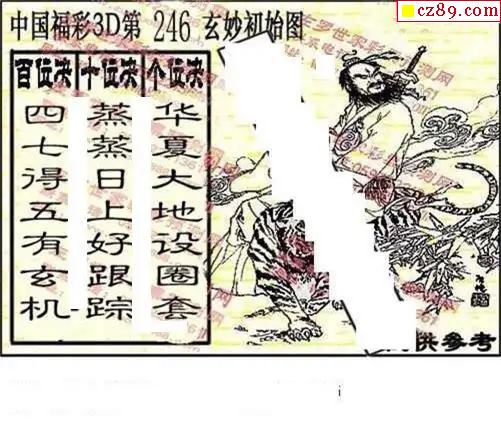 cz89.com
中国福彩3D第 246 玄妙初始图
百位决 十位决 个位决
四七得五有玄机
蒸蒸日上好跟踪
华夏大地设圈套
供参考
i